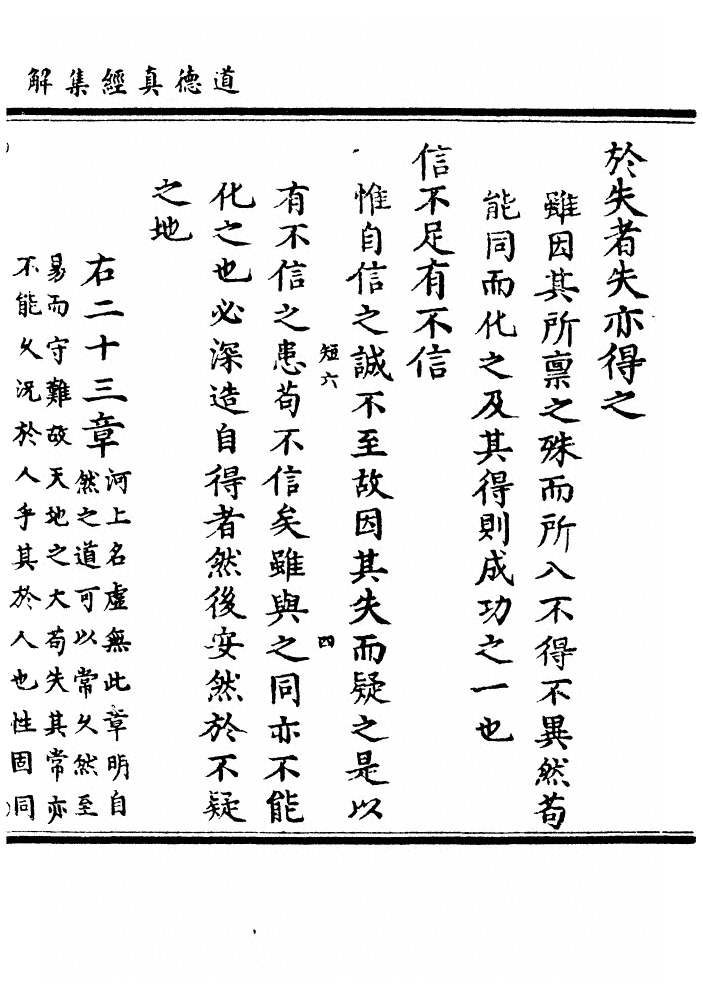 道德真經集解
於失者失亦得之
雖因其所禀之殊而所入不得不異然苟
能同而化之及其得則成功之一也
信不足有不信
惟自信之誠不至故因其失而疑之是以
短六
四
有不信之患苟不信矣雖與之同亦不能
化之也必深造自得者然後安然於不疑
之地
右二十三章
河上名虛無此章明自
然之道可以常久然至
易而守難故天地之大苟失其常亦
不能久況於人乎其於人也性固同